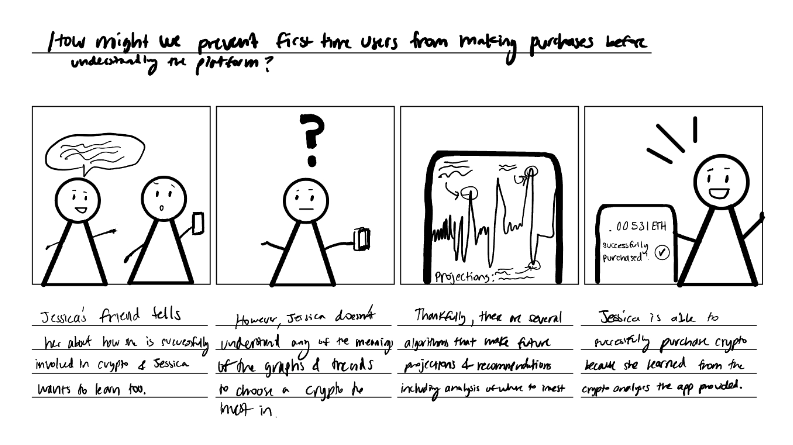 How might we prevent first time users from making purchases before
understanding the platform?
?
Projections:
.00531 ETH
successfully
purchased
Jessica's friend tells
her about how she is successfully
involved in crypto & Jessica
wants to learn too.
However, Jessica doesn't
understand any of the meaning
of the graphs & trends
to choose a crypto to
invest in.
Thankfully, there are several
algorithms that make future
projections & recommendations
including analysis of where to invest
Jessica is able to
successfully purchase crypto
because she learned from the
crypto analysis the app provided.